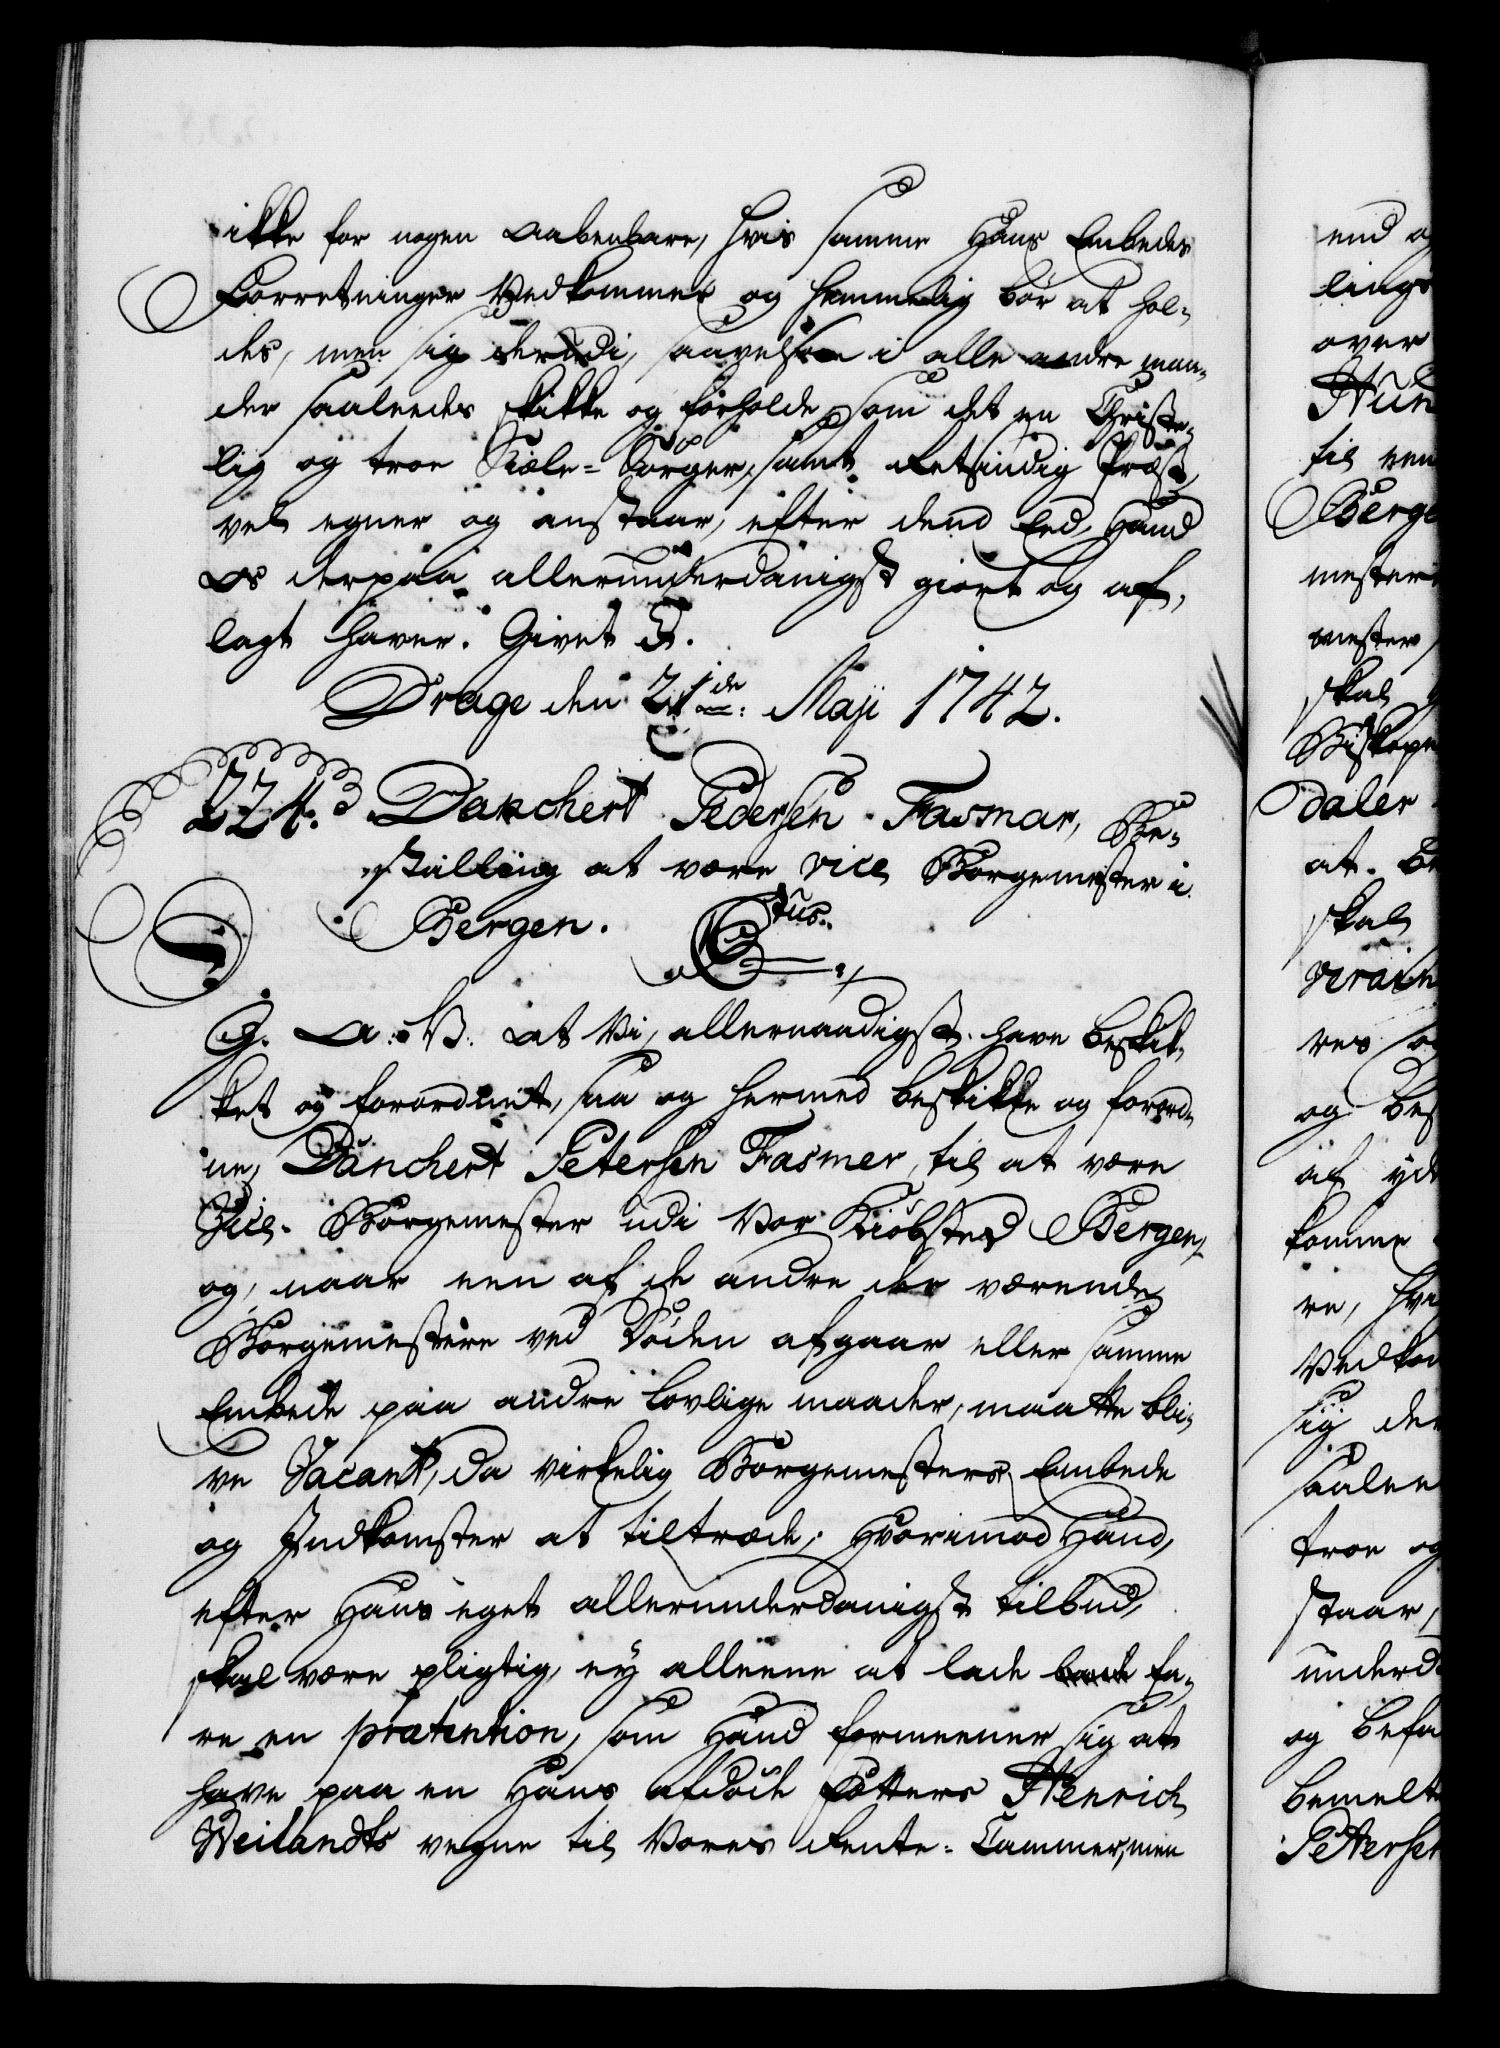 ikke for nogen aabenbare, hvis samme Hans Embedes
Forretninger Vedkommer og hemmelig bör at hol-
des, men sig derudi, saavelsom i alle andre maa-
der saaledes skikke og forholde, som det en Christe-
lig og troe Siæle-Sörger, samt Retsindig Præst
vel egner og anstaar, efter dend Eed, Hand
Os derpaa allerunderdanigst giort og af-
lagt haver. Givet &.
Drage den 21de: Maji 1742.
224. Danchert Pedersen Fasmar, Be-
stalling at være vice Borgemester i
Bergen.
C tus.
G. A: V: at Vi, allernaadigst have beskik-
ket og forordnet, saa og hermed beskikke og forord-
ne, Danchert Petersen Fasmer, til at være
Vice-Borgemester udi Vor Kiöbsted Bergen,
og, naar een af de andre der værende
Borgemestere ved Döden afgaar eller samme
Embede paa andre lovlige maader, maatte bli-
ve Vacant, da virkelig Borgemesters Embede
og Indkomster at tiltræde; Hvorimod Hand,
efter Hans eget allerunderdanigst tilbud,
skal være pligtig, ey alleene at lade fa-
re en prætention, som Hand formeener sig at
have paa en Hans afdöde Fætters Henrich
Weilandts vegne til Vores Rente-Cammer, men
end og
lings
over
til ven
Berge
mester
mester,
skal
Biskope
daler
at. Be
skal
res og
og bes
af yde
komme
re, hvi
Vedkom
sig der
saalee
troe og
staar,
underd
og befa
bemelte
Petersen